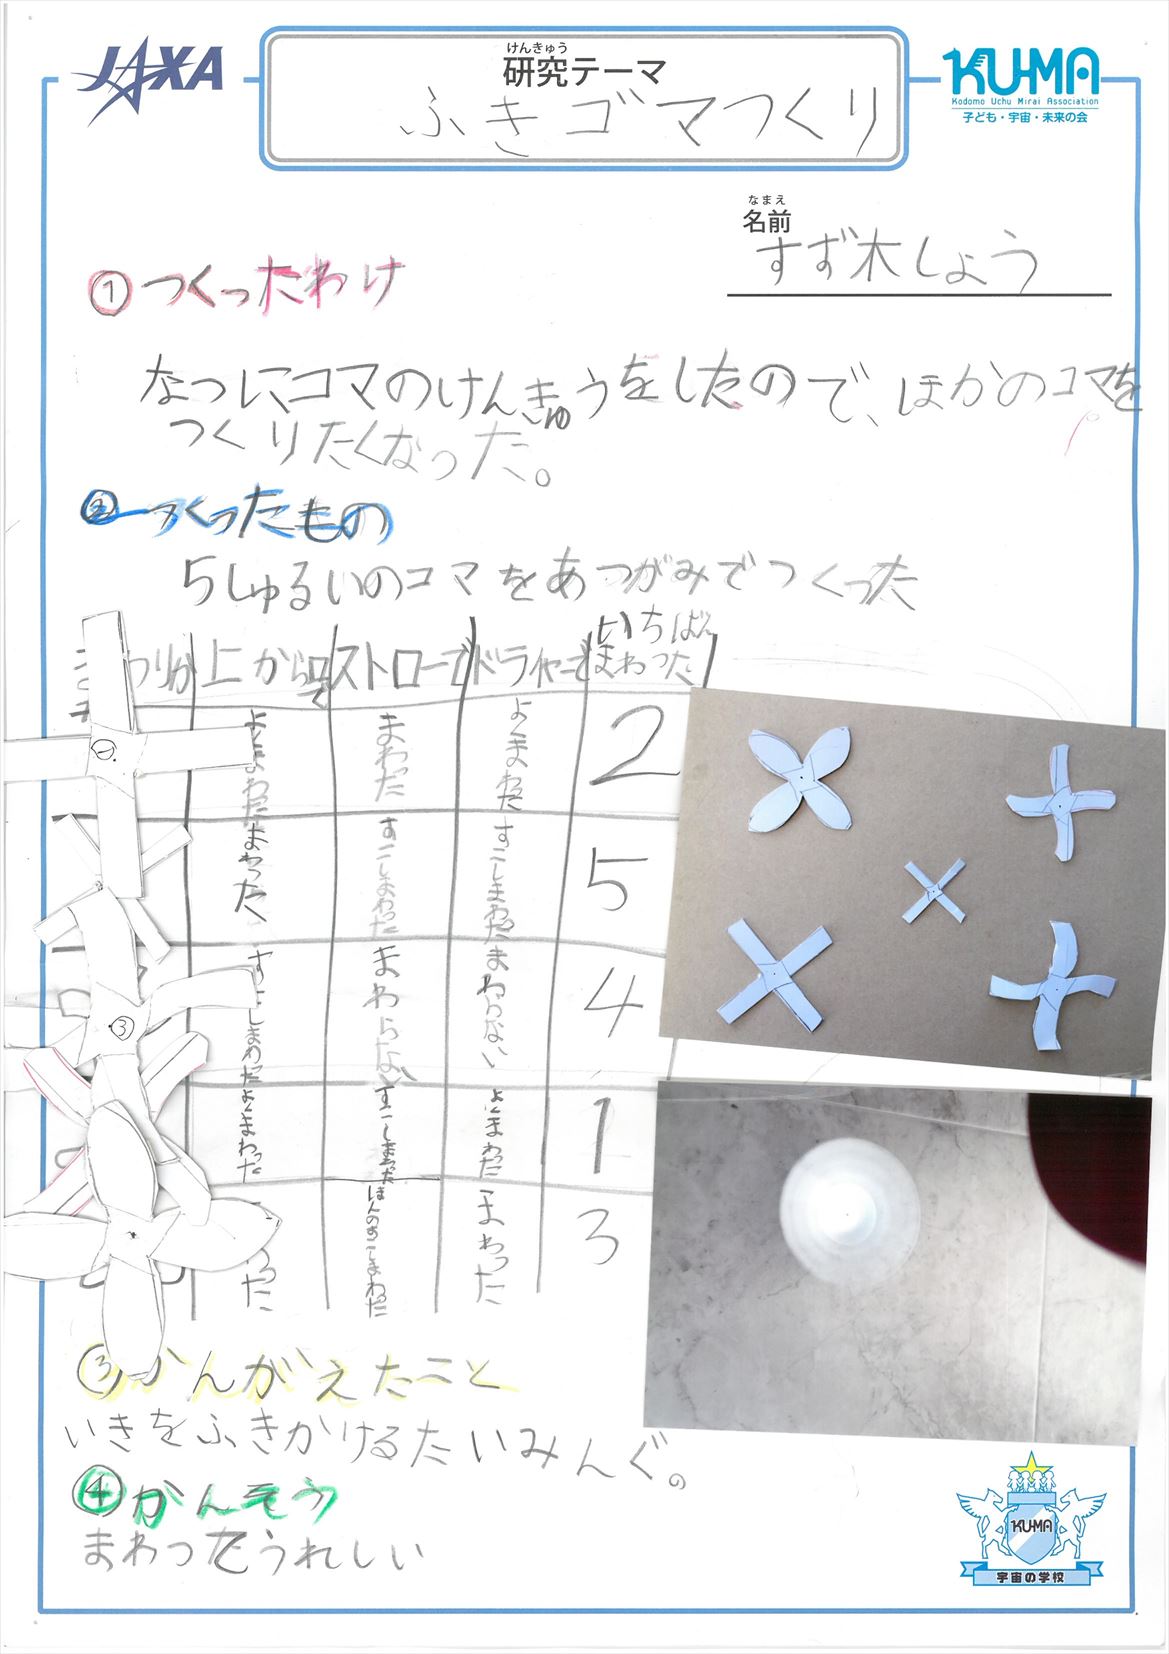 JAXA
けんきゅう
研究テーマ
ふきゴマつくり
KU-MA
Kodomo Uchu Mirai Association
子ども・宇宙・未来の会
なまえ
名前
すず木しょう
①つくったわけ
なつにコマのけんきゅうをしたので、ほかのコマを
つくりたくなった。
②つくったもの
5しゅるいのコマをあつがみでつくった
上から ストローで ドライヤーで いちばんまわった
① よくまわった まわった よくまわった 2
まわった すこしまわった すこしまわった 5
③ すこしまわった まわらない まわらない 4
よくまわった すこしまわった よくまわった 1
った ほんのすこしまわった まわった 3
③かんがえたこと
いきをふきかけるたいみんぐ。
④かんそう
まわってうれしい
KU-MA
宇宙の学校